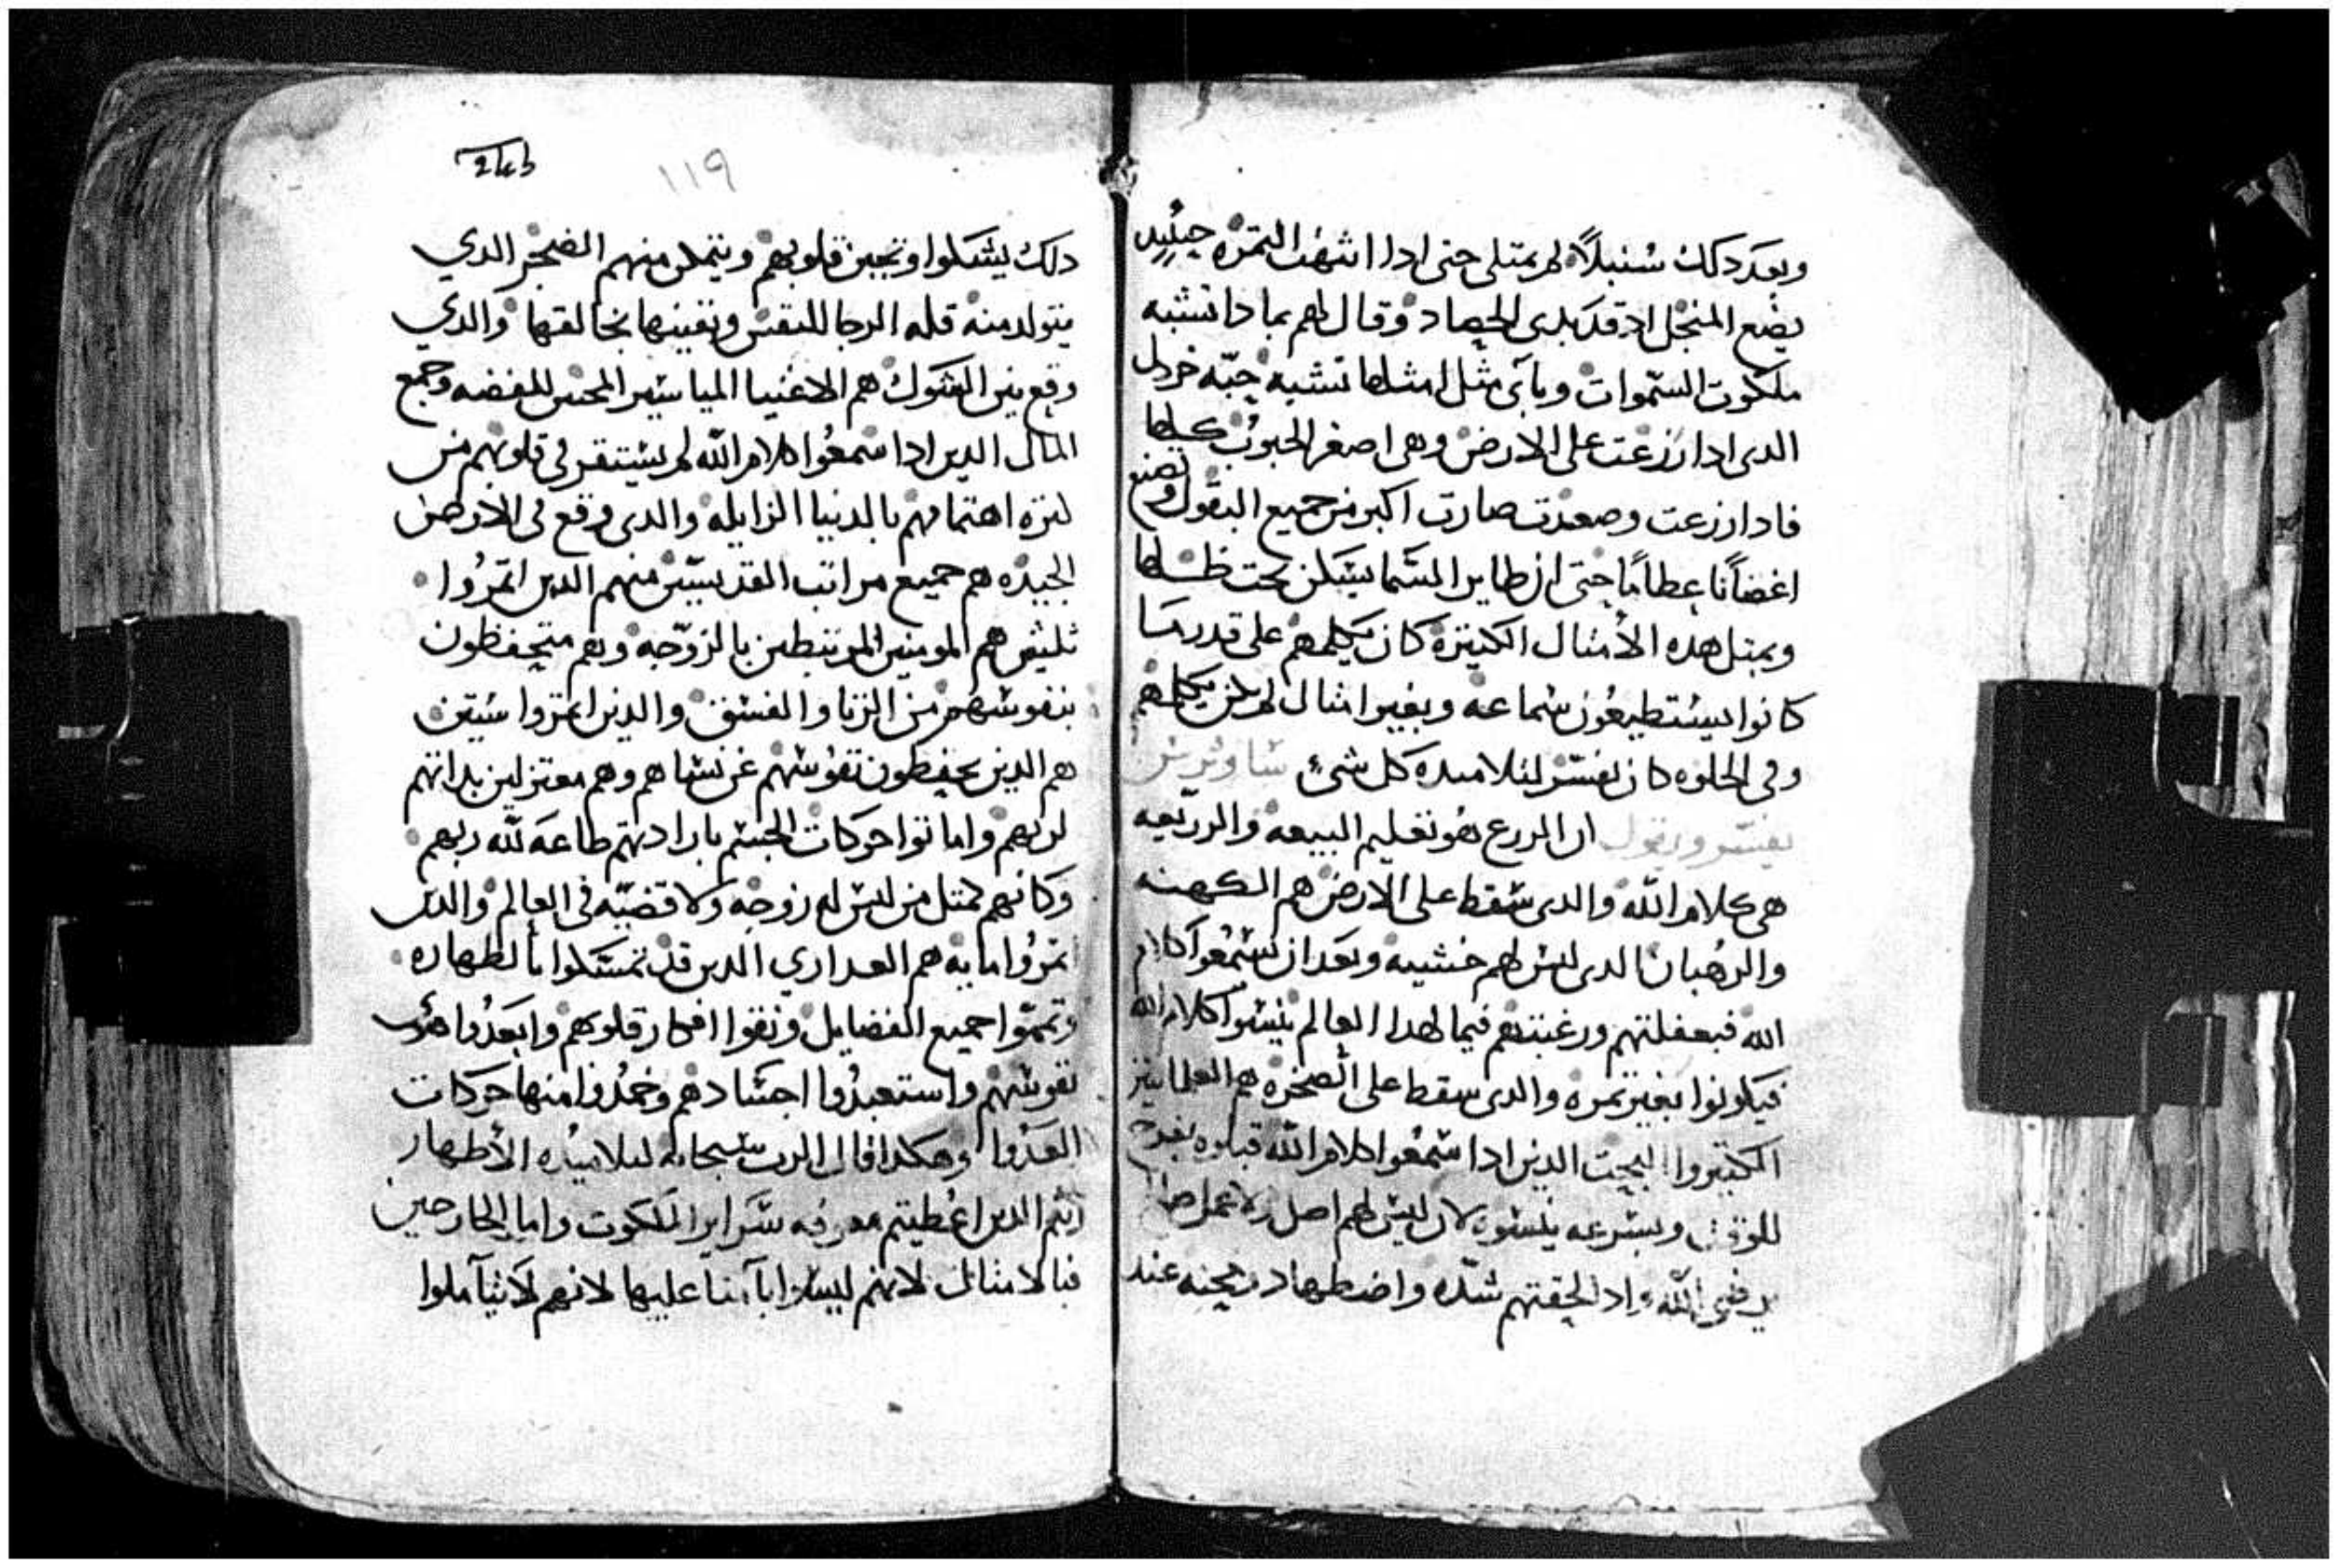 وبعد دلك سُنبلاً لم يمتلي حتى ادا اشهت التمره حينيدٍ
يضع المنجل اد قد بلى الحصاد وقال لهم بما دا تشبه
ملكوت السموات وبأى مثل امثلها تشبه حبّه خردل
الدى ادا زرعت على الارض وهى اصغر الحبوب كلها
فادا زرعت وصعدت صارت اكبر من جميع البقول وتصنع
اغصاناً عطاماً حتى ان طاير السما يسكن تحت ظلها
وبمثل هده الأمثال الكتيرة كان يكلمهم على قدر ما
كانوا يستطيعون سماعه وبغير امثال لم يكن يكلمهم
وفى الخلوه كان يفسر لتلاميده كل شىء ساويرس
يفسر ويقول ان الزرع هو تعليم البيعه والزريعه
هى كلام الله والدى سقط على الارض هم الكهنه
والرهبان الدى ليس لهم خشيه وبعد ان يسمعوا كلام
الله فبغفلتهم ورغبتهم فيما لهدا العالم ينسوا كلام الله
فيكونوا بغير تمره والدى سقط على الصخره هم العلمانيين
الكتيروا البحت الدين ادا سمعوا كلام الله قبلوه بفرح
للوقت وبسرعه ينسوه لان ليس لهم اصل ولا عمل صالح
يرضى الله واد لحقتهم شدّه واضطهاد ومحنه عند
2حد
١١٩
دلك يشكلوا وتجبن قلوبهم ويتمكن منهم الضجر الدي
يتولد منه قله الرجا للنفس وتقينها بخالقها والدي
وقع بين الشوك هم الاغنيا المياسير المحبين للفضه وجمع
المال الدين ادا سمعوا كلام الله لم يستقر فى قلوبهم من
كتره اهتمامهم بالدنيا الزايله والدى وقع فى الارض
الجيده هم جميع مراتب القديسين منهم الدين اتمروا
ثلثين هم المومنين المرتبطين بالزوجه وهم متحفظون
بنفوسهم من الزنا والفسق والدين اتمروا ستين
هم الدين يحفظون نفوسهم عن نساهم وهم معتزلين بداتهم
لربهم واماتوا حركات الجسم بارادتهم طاعه لله ربهم
وكانهم كمتل من ليس له زوجه ولا قضيّه فى العالم والدين
اتمروا مايه هم العداري الدين قد تمسكوا بالطهاره
وتمموا جميع الفضايل ونقوا افكار قلوبهم وابعدوا هوى
نفوسهم واستعبدوا اجسادهم وخمدوا منها حركات
العدوا وهكدا قال الرب سبحانه لتلاميده الأطهار
أنتم الدين اعطيتم معرفه سراير الملكوت واما الخارجين
فبالامثال لانهم ليسلوا باامنا عليها لانهم لا يتأملوا